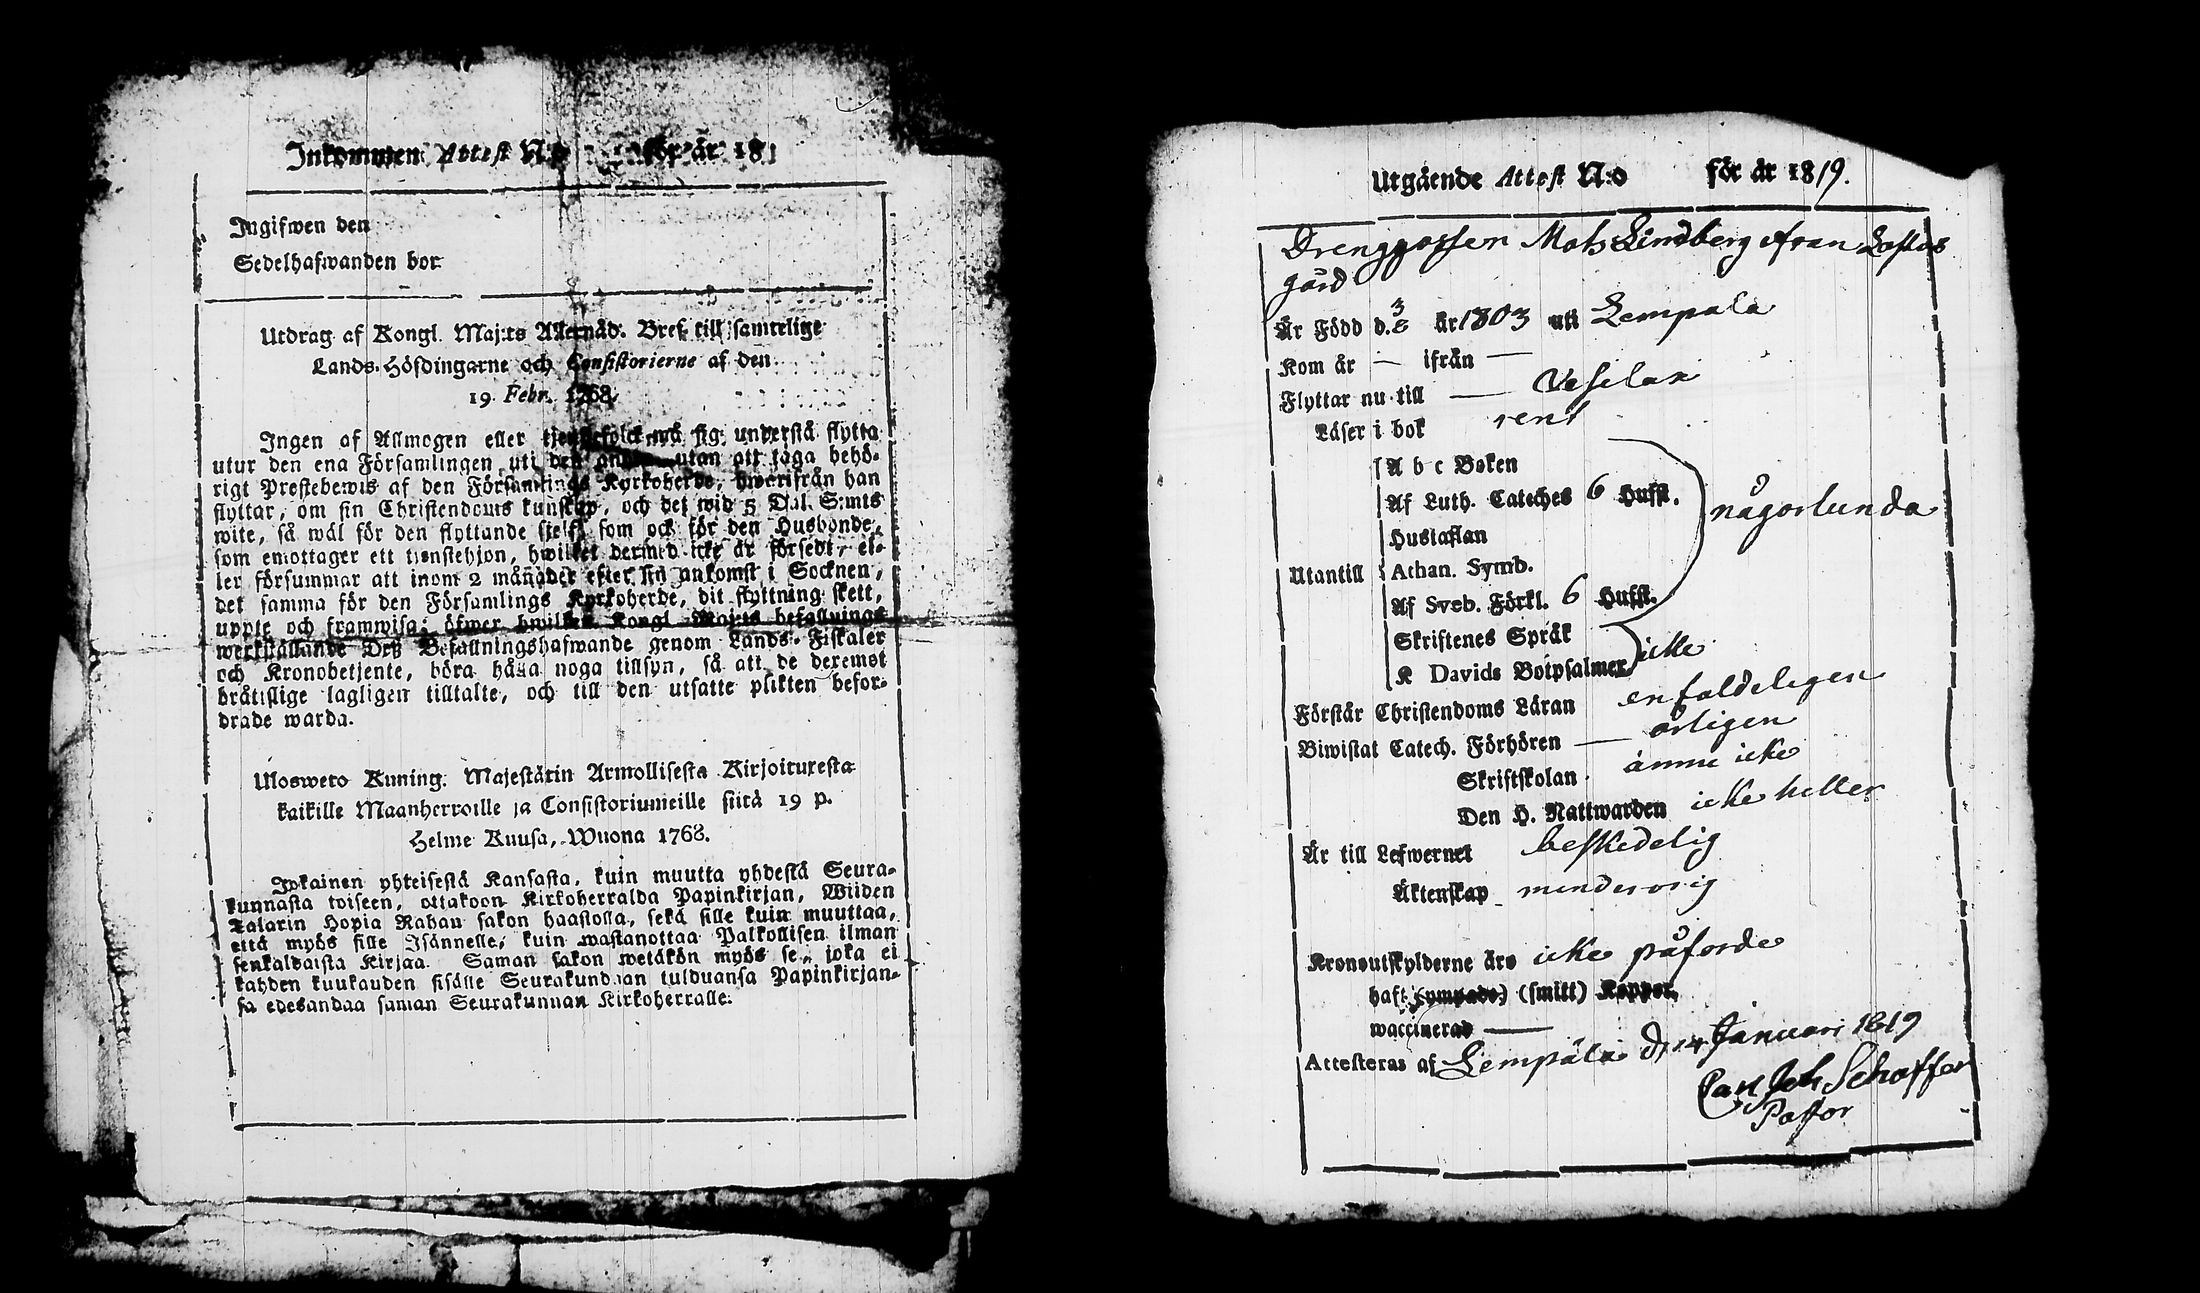 Inkommen Attest N:o för år 181
Ingifwen den
Sedelhafwanden bor
Utdrag af Kongl. Maj:ts Allernåd. Bref till samtelige
Lands-Höfdingarne och Consistorierne af den
19 Febr. 1768.
Ingen af Allmogen eller tjenstefolck må sig understå flytta
utur den ena Församlingen uti den andra utan att taga behö-
rigt Prestebewis af den Församlings Kyrkoherde, hwarifrån han
flyttar, om sin Christendoms kunskap, och det wid 5 Dal. S:mts
wite, så wäl för den flyttande sielf som ock för den Husbonde,
som emottager ett tienstehjon, hwilket dermed icke är försedt, el-
ler försummar att inom 2 månader efter sin ankomst i Socknen,
det samma för den Församlings Kyrkoherde, dit flyttning skett,
uppte och framwisa; öfwer hwilken Kongl Maj:ts befallnings
werkställande Deß Befallningshafwande genom Lands-Fiskaler
och Kronobetjente, böra hålla noga tillsyn, så att de deremot
bråtslige lagligen tilltalte, och till den utsatte plikten befor-
drade warda.
Ulosweto Kuning. Majestätin Armollisesta Kirjoituxesta
kaikille Maanherroille ja Consistoriumeille siitä 19 p.
Helme Kuusa, Wuona 1768.
Jokainen yhteisestä Kansasta, kuin muutta yhdestä Seura-
kunnasta toiseen, ottakoon Kirkoherralda Papinkirjan, Wiiden
Talarin Hopia Rahan sakon haastolla, sekä sille kuin muuttaa,
että myös sille Isännelle, kuin wastanottaa Palkollisen ilman
senkaldaista Kirjaa. Saman sakon wetäkön myös se, joka ei
kahden kuukauden sisälle Seurakundaan tulduansa Papinkirjan-
sa edesandaa saman Seurakunnan Kirkoherralle.
Utgående Attest N:o för år 1819.
Drenggossen Mats Lindberg ifran
gård
Är Född d. 3/8 år 1803 uti Lempala
Kom år — ifrån —
Flyttar nu till — Vesilax
Läser i bok rent
A b c Boken
Af Luth. Cateches 6 Hufst.
någorlunda
Hustaflan
Utantill Athan. Symb.
Af Sveb. Förkl. 6 Hufst.
Skriftenes Språk
icke
K Davids Botpsalmer
Förstår Christendoms Läran enfaldeligen
Biwistat Catech. Förhören — årligen
Skriftskolan ännu icke
Den H. Nattwarden icke heller
Är till Lefwernet beskedelig
Äktenskap minderorig
Kronoutskylderne äro icke påförde
haft (ympade) (smitt) Koppor.
waccinerad —
Attesteras af Lempäla d. 14 Januari 1819
Carl Joh Schaffer
Pastor